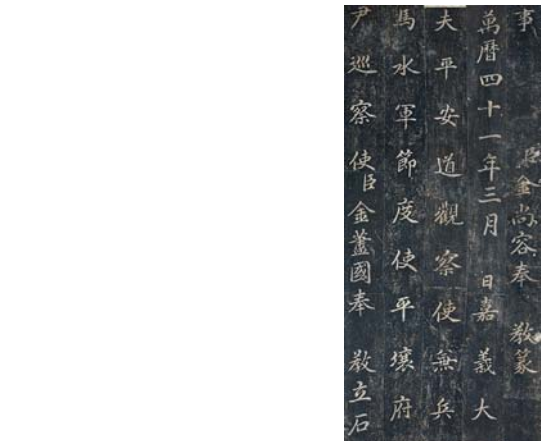 事 臣金尚容奉 教篆
萬曆四十一年三月 日嘉義大
夫平安道觀察使兼兵
馬水軍節度使平壤府
尹巡察使臣金藎國奉 教立石